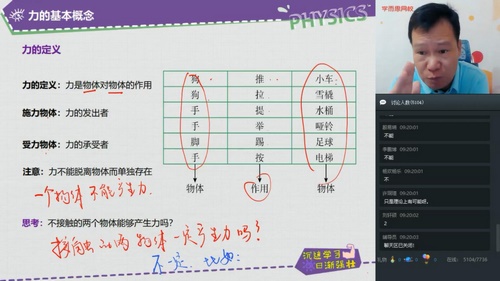 力的基本概念
PHYSICS
学而思网校
力的定义
力的定义：力是物体对物体的作用
施力物体：力的发出者
受力物体：力的承受者
注意：力不能脱离物体而单独存在
一个物体不能产生力
狗 推 小车
狗 拉 雪橇
手 提 水桶
手 举 哑铃
脚 踢 足球
手 按 电梯
物体 作用 物体
思考：不接触的两个物体能够产生力吗？
接触的两物体一定产生力吗？
不一定，比如：
沉迷学习
日渐强壮
讨论人数
09:20:01
不能
09:20:01
不能
09:20:01
不能
09:20:01
只是理论上有可能吧。
09:20:01
2
09:20:01
聊天区已关闭!
礼物
在线：5104/7736